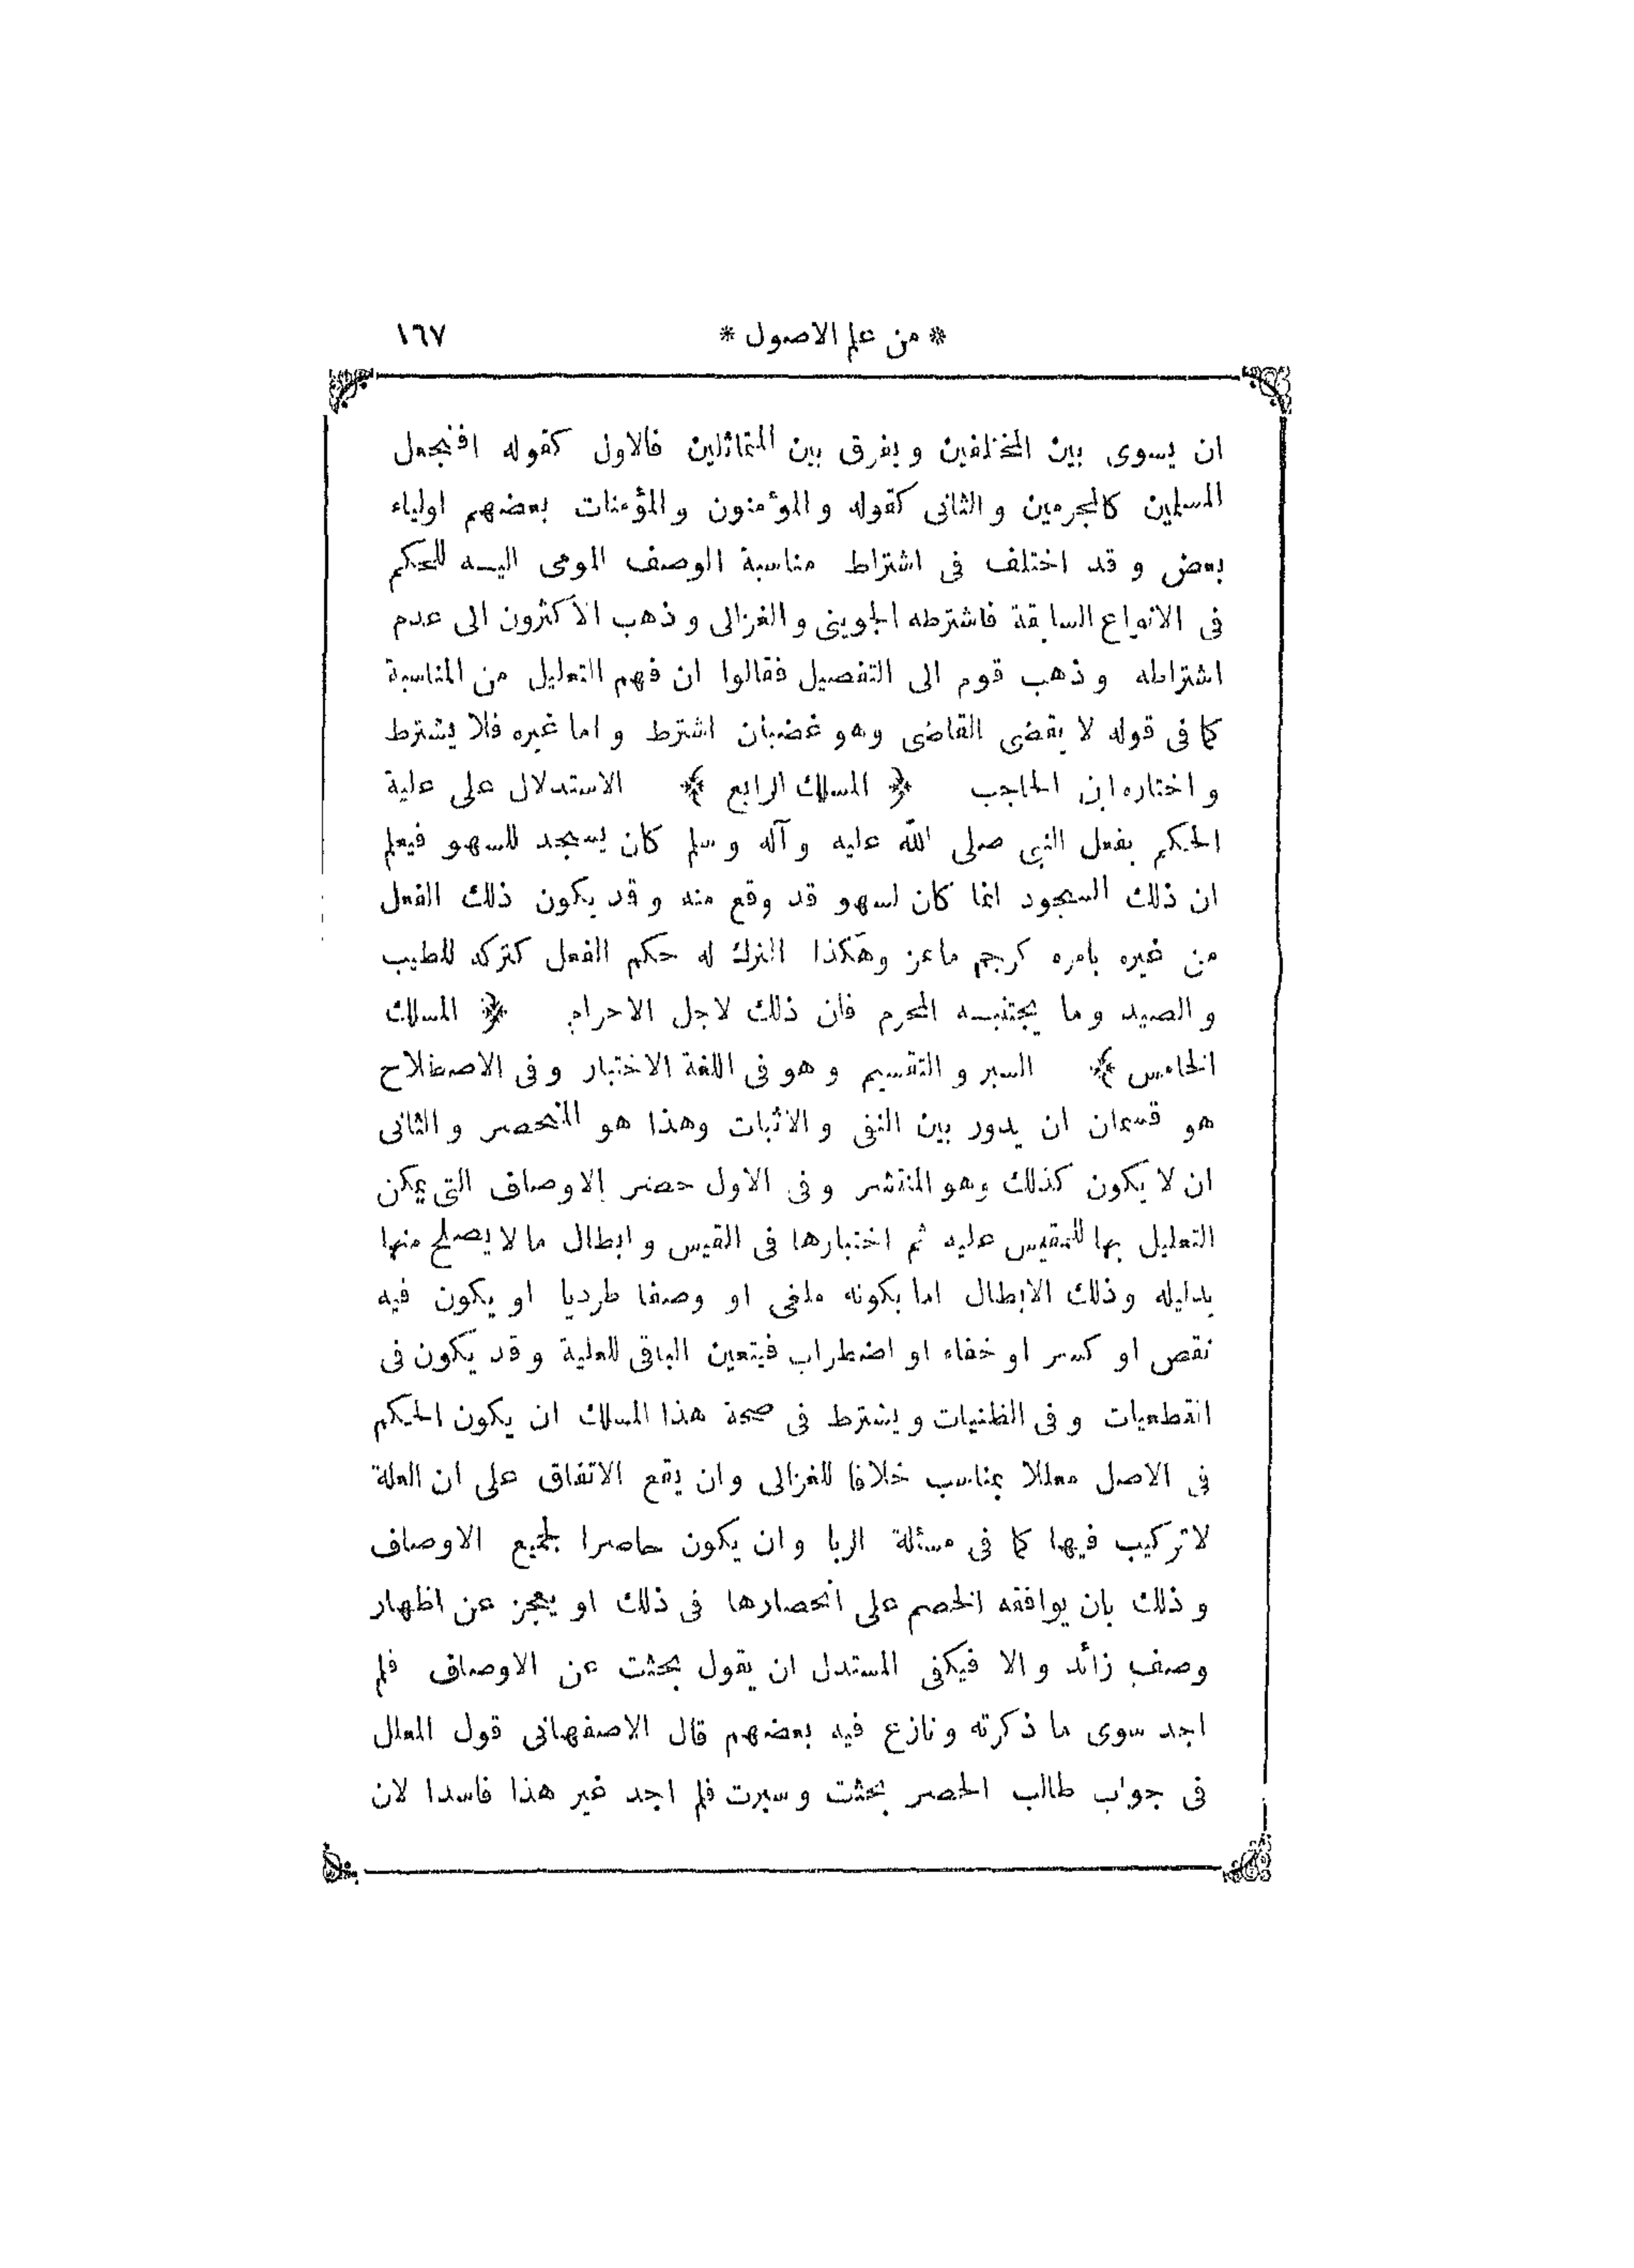 * من علم الاصول * ١٦٧
ان يسوى بين المختلفين ويفرق بين المتماثلين فالاول كقوله افنجعل
المسلمين كالمجرمين والثانى كقوله والمؤمنون والمؤمنات بعضهم اولياء
بعض وقد اختلف فى اشتراط مناسبة الوصف المومى اليه للحكم
فى الانواع السابقة فاشترطه الجوينى والغزالى وذهب الاكثرون الى عدم
اشتراطه وذهب قوم الى التفصيل فقالوا ان فهم التعليل من المناسبة
كما فى قوله لا يقضى القاضى وهو غضبان اشترط واما غيره فلا يشترط
واختاره ابن الحاجب ﴿ المسلك الرابع ﴾ الاستدلال على علية
الحكم بفعل النبى صلى الله عليه وآله وسلم كان يسجد للسهو فيعلم
ان ذلك السجود انما كان لسهو قد وقع منه وقد يكون ذلك الفعل
من غيره بامره كرجم ماعز وهكذا الترك له حكم الفعل كتركه للطيب
والصيد وما يجتنبه المحرم فان ذلك لاجل الاحرام ﴿ المسلك
الخامس ﴾ السبر والتقسيم وهو فى اللغة الاختبار وفى الاصطلاح
هو قسمان ان يدور بين النفى والاثبات وهذا هو المنحصر والثانى
ان لا يكون كذلك وهو المنتشر وفى الاول حصر الاوصاف التى يمكن
التعليل بها للمقيس عليه ثم اختبارها فى القيس وابطال ما لا يصلح منها
بدليله وذلك الابطال اما بكونه ملغى او وصفا طرديا او يكون فيه
نقص او كسر او خفاء او اضطراب فيتعين الباقى للعلية وقد يكون فى
القطعيات وفى الظنيات ويشترط فى صحة هذا المسلك ان يكون الحكم
فى الاصل معللا بمناسب خلافا للغزالى وان يقع الاتفاق على ان العلة
لا تركيب فيها كما فى مسئلة الربا وان يكون حاصرا لجميع الاوصاف
وذلك بان يوافقه الخصم على انحصارها فى ذلك او يعجز عن اظهار
وصف زائد والا فيكفى المستدل ان يقول بحثت عن الاوصاف فلم
اجد سوى ما ذكرته ونازع فيه بعضهم قال الاصفهانى قول المعلل
فى جواب طالب الحصر بحثت وسبرت فلم اجد غير هذا فاسدا لان